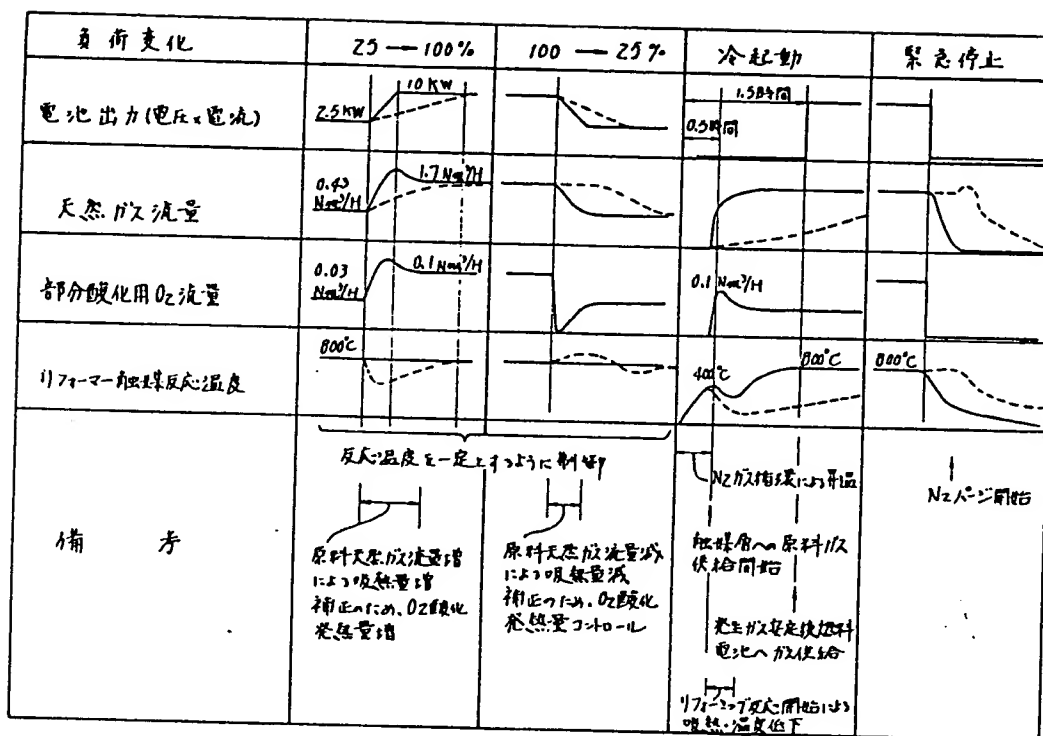 負荷変化
25→100%
100→25%
冷起動
緊急停止
電池出力(電圧×電流)
2.5KW
10KW
1.5時間
0.5時間
天然ガス流量
0.43
Nm³/H
1.7Nm³/H
部分酸化用O2流量
0.03
Nm³/H
0.1Nm³/H
0.1Nm³/H
リフォーマー触媒反応温度
800℃
400℃
800℃
800℃
備考
反応温度を一定とするように制御
原料天然ガス流量増
による吸熱量増
補正のため、O2酸化
発熱量増
原料天然ガス流量減
による吸熱量減
補正のため、O2酸化
発熱量コントロール
N2ガス循環による昇温
触媒層への原料ガス
供給開始
発生ガス安定後燃料
電池へガス供給
リフォーミング反応開始による
吸熱・温度低下
N2パージ開始